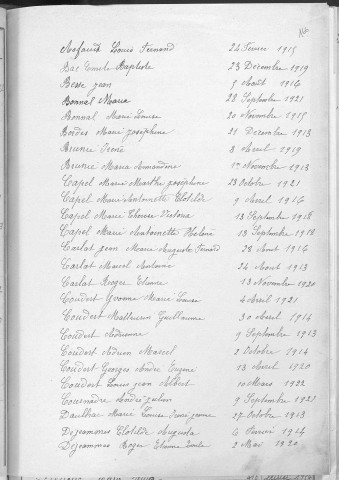 Louis Fernand 24 Février 1915
Bac Emile Baptiste 23 Décembre 1919
Besse Jean 5 Août 1916
Bonnal Maria 28 Septembre 1921
Bonnal Marie Louise 20 Novembre 1915
Bordes Marie Joséphine 21 Décembre 1913
Brunie René 8 Avril 1919
Brunie Maria Amandine Novembre 1913
Capel Marie Marthe Joséphine 23 Octobre 1921
Capel Marie Antoinette Clotilde 9 Avril 1916
Capel Marie Thérèse Victoria 13 Septembre 1918
Capel Marie Antoinette Hélène 13 Septembre 1918
Carlat Jean Marie Auguste Fernand 28 Août 1916
Carlat Marcel Antoine 24 Août 1913
Carlat Roger Etienne 13 Novembre 1920
Coudert Yvonne Marie Louise 4 Avril 1921
Coudert Guillaume 30 Avril 1914
Coudert Adrienne 9 Septembre 1913
Coudert Adrien Marcel 2 Octobre 1914
Coudert Georges André Eugène 13 Avril 1920
Coudert Louis Jean Albert 10 Mars 1922
André Julien 9 Septembre 1921
Marie Louise Jeanne 27 Octobre 1913
Dejeammes Clotilde Augusta 6 Février 1914
Dejeammes Roger Etienne Emile 2 Mai 1920